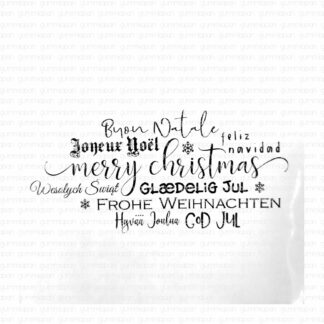 Buon Natale
feliz navidad
Joyeux Noël
merry christmas
Wesołych Świąt
Glædelig Jul
Frohe Weihnachten
Hyvää Joulua
God Jul